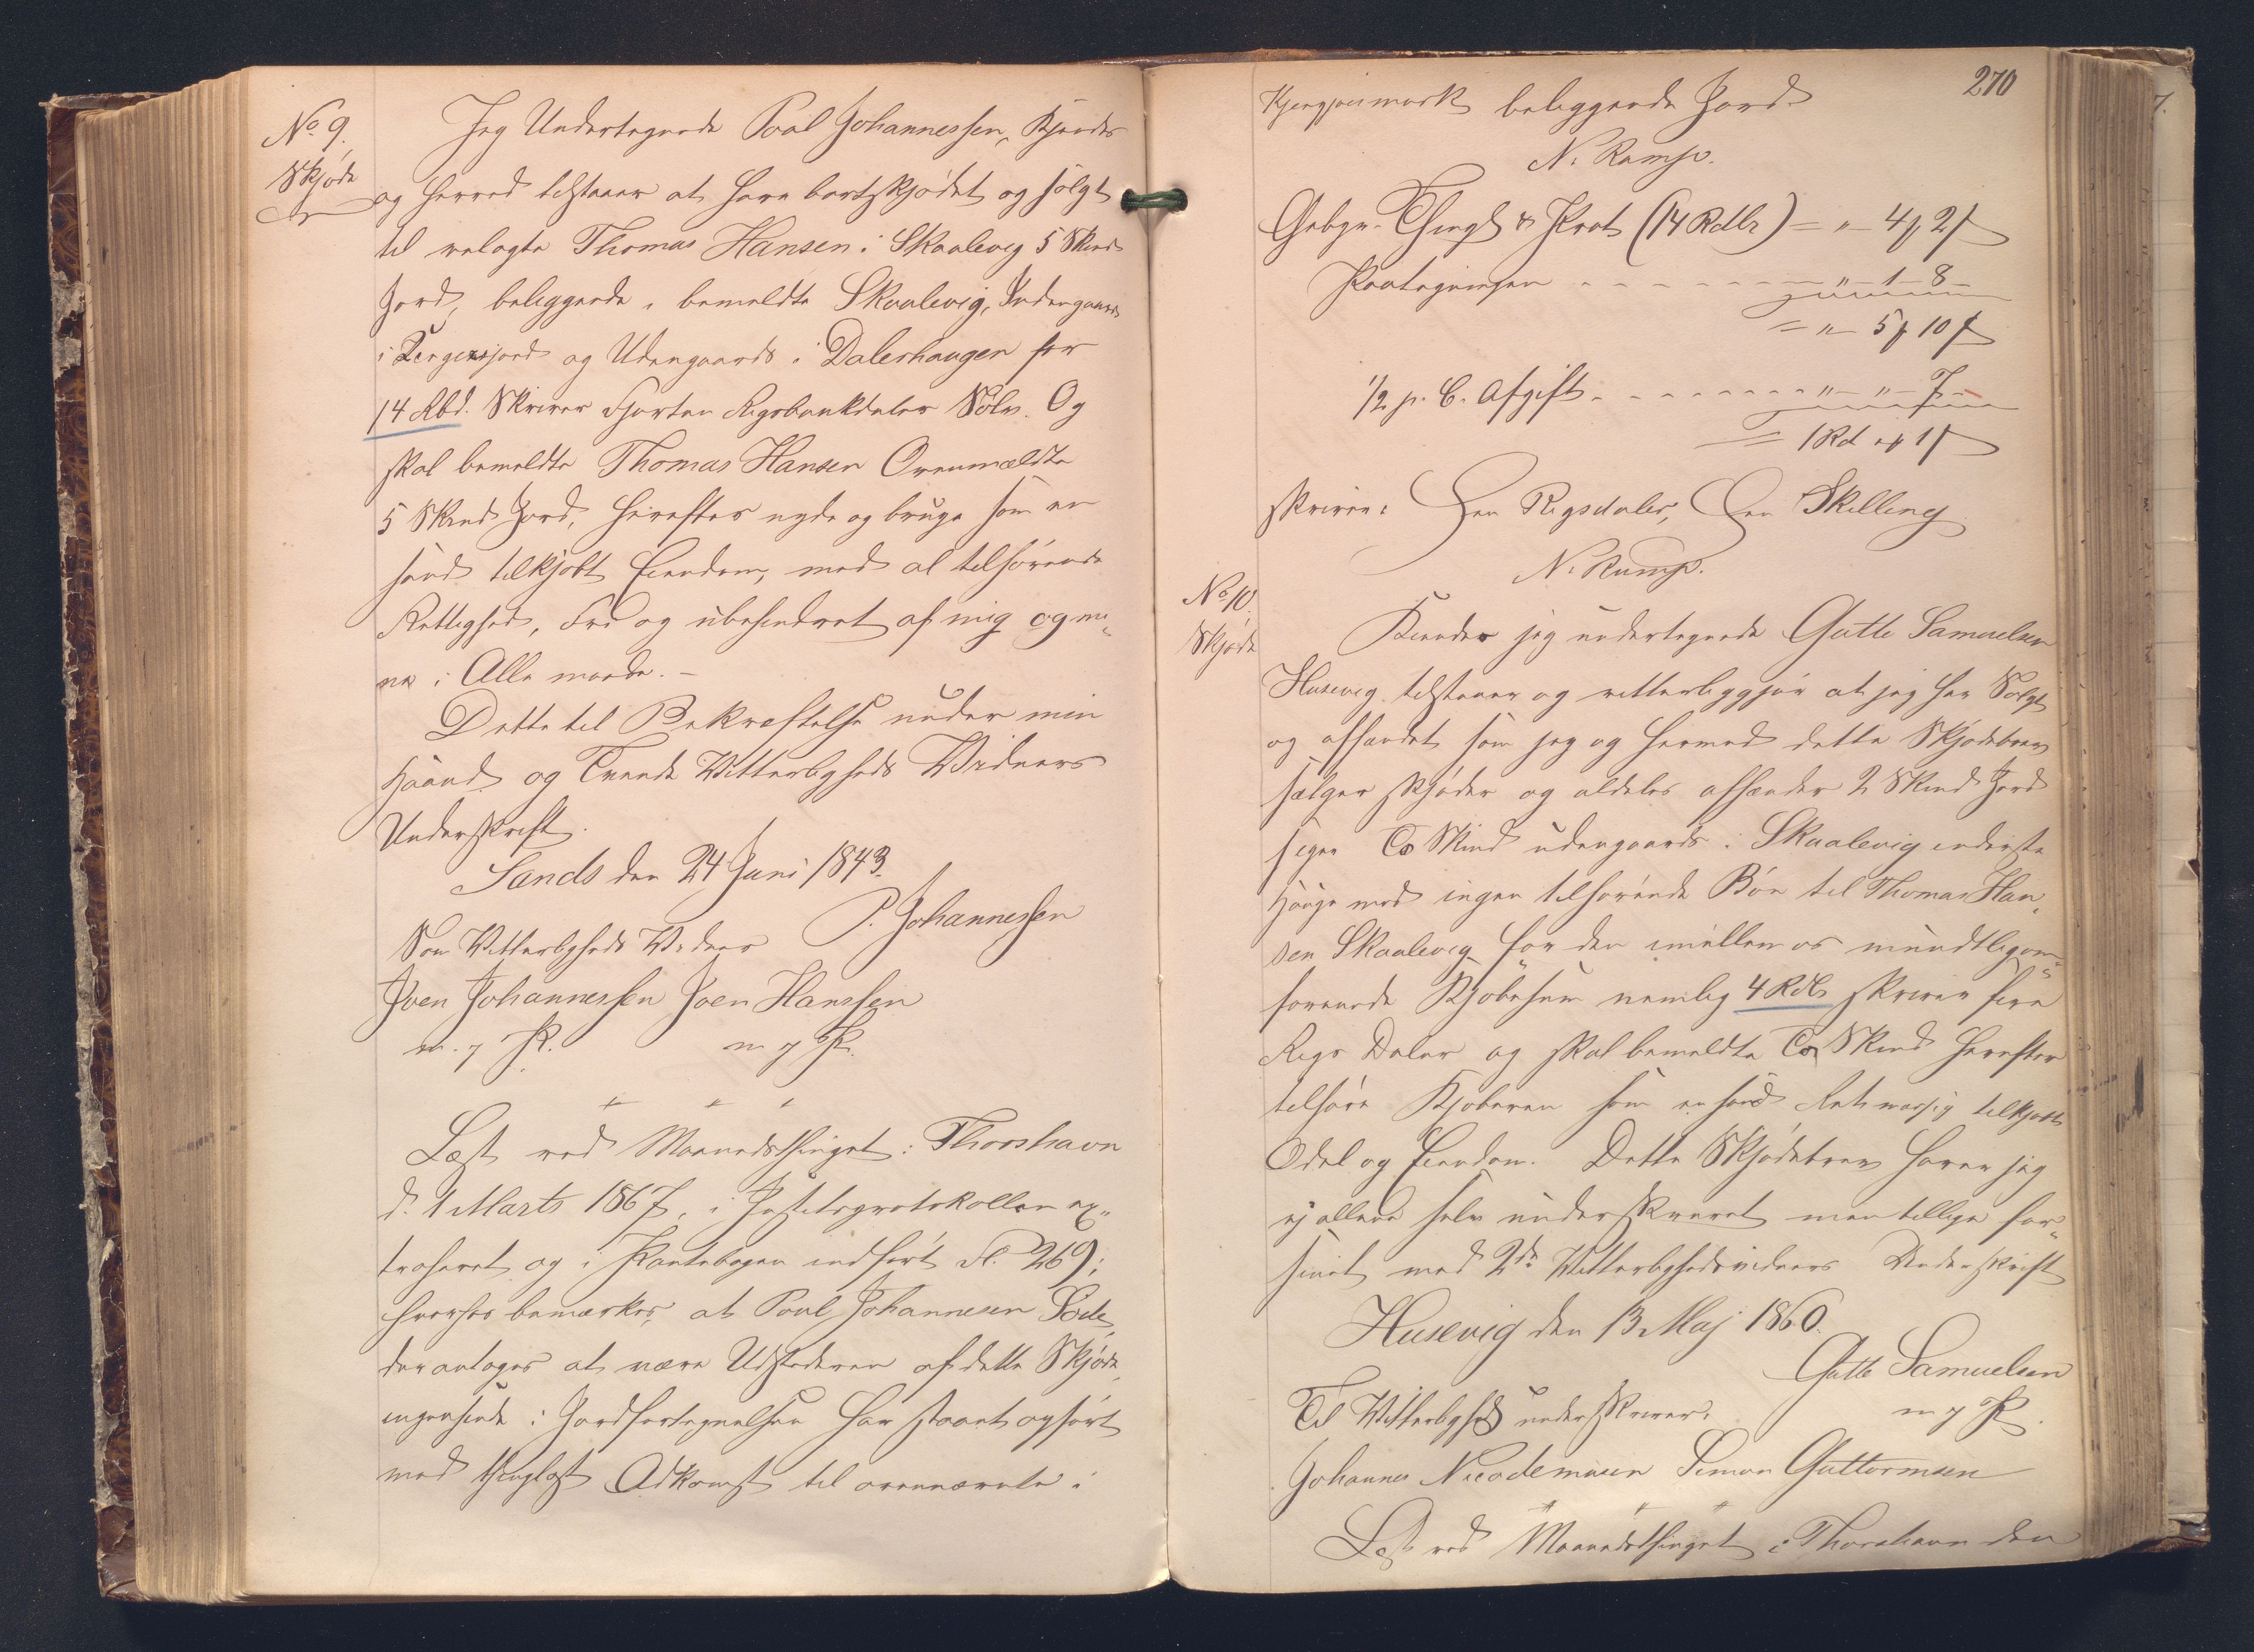 No 9.
Skjøde
Jeg Undertegnede Poul Johannessen, Kjender
og herved tilstaaer at have bortskjødet og solgt
til velagte Thomas Hansen i Skaalevig 5 Skind
Jord, beliggende i bemeldte Skaalevig, Indengaards
i og Udengaards i Daleshaugen for
14 Rbd. Skriver Fjorten Rigsbankdaler Sølv. Og
skal bemeldte Thomas Hansen Ovenmældte
5 Skind Jord, herefter nyde og bruge som en
sand tilkjøbt Eiendom, med al tilhørende
Rettighed, Fri og ubehindret af mig og mi„
ne i Alle maade. –
Dette til Bekræftelse under min
Haand og Tvende Vitterligheds Vidners
Underskrift.
Sands den 24 Juni 1843.
P. Johannessen
Som Vitterligheds Vidner
Joen Johannessen Joen Hanssen
m. p. m p
Læst ved Maanedsthinget i Thorshavn
d. 1 Marts 1867, i Justitsprotokollen ex„
traheret og i Pantebogen indført Fol. 269;
hvorhos bemærkes, at Poul Johannesen
der antages at være Udstederen af dette Skjøde,
ingensinde i Jordfortegnelsen har staaet opført
med thinglæst Adkomst til ovennævnte i
270
beliggende Jord.
N. Rump.
Gebyr. Thingl & Prot (14 Rdlr) = „ – 4 2
Paategningen - - - - - „ – 1 – 8 –
= „ – 5 10
1/2 p. C. Afgift - - - - - „ – „ – 7 –
= 1 Rd „ 1
skriver: Een Rigsdaler, Een Skilling
N. Rump.
No 10.
Skjøde
Kiender jeg undertegnede Gutte Samuelsen
Husevig tilstaaer og vitterliggjør at jeg har Solgt
og afhændet som jeg og hermed dette Skjødebrev
sælger skjøder og aldeles afhænder 2 Skind Jord
siger To Skind udengaards i Skaalevig inderste
Hauge med ingen tilhørende Bøe til Thomas Han„
sen Skaalevig for den imellem os mundtligom„
forenede Kjøbesum nemlig 4 Rdlr skriver fire
Rigs Daler og skal bemeldte To Skind herefter
tilhøre Kjøberen som en sand Retmæssig tilkjøbt
Odel og Eiendom. Dette Skjødebrev haver jeg
ej allene selv underskrevet men tillige for„
synet med 2de Vitterlighedsvidners Underskrift
Husevig den 13 Maj 1860.
Gutte Samuelsen
m p
Til Vitterlighed underskriver:
Johannes Nicodemusen Simon Guttormsen
Læst ved Maanedsthinget i Thorshavn den